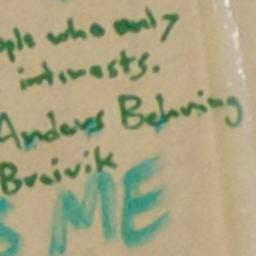 ople who only
interests.
Anders Behring
Breivik
S ME